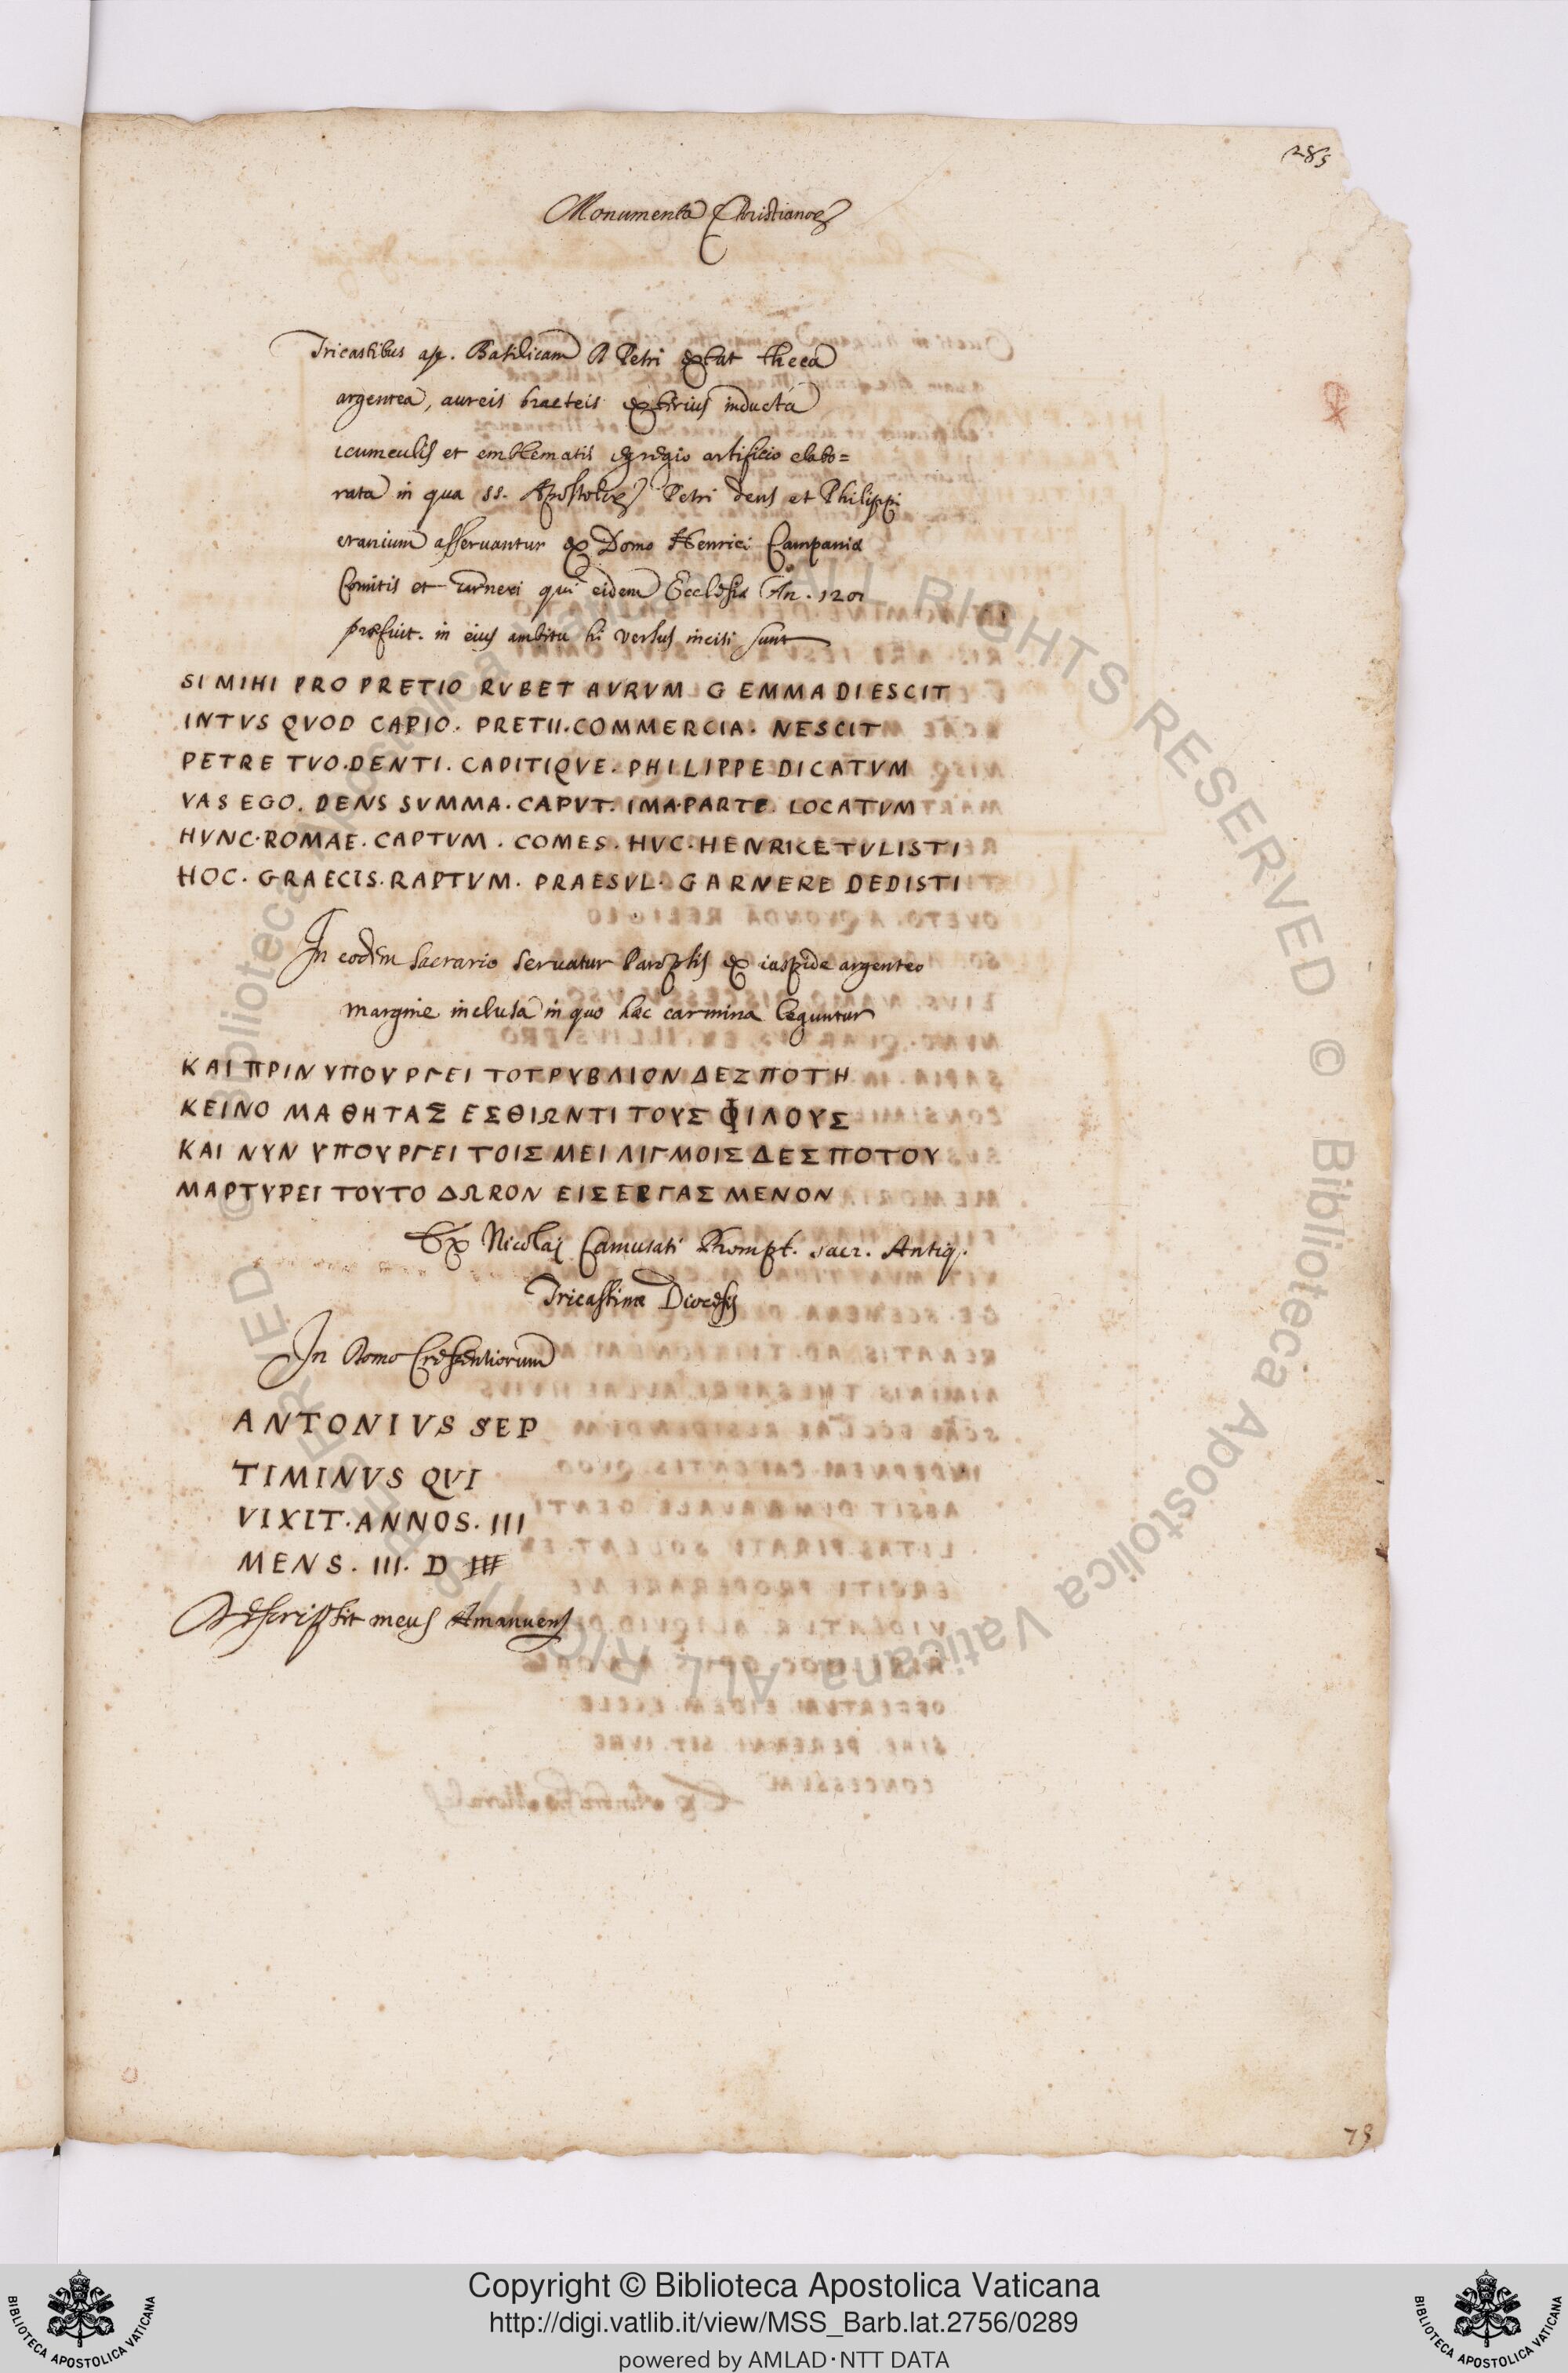 285
Monumenta Christianor
Tricastibus ap. Basilicam B Petri extat theca
argentea, aureis bracteis exterius inducta
icunculis et emblematis egregio artificio elabo=
rata in qua SS. Apostolor Petri dens et Philippi
cranium asservantur ex Domo Henrici Campaniæ
Comitis et Garneri qui eidem Ecclesiæ An. 1201
præfuit. in eius ambitu hi versus incisi sunt
SI MIHI PRO PRETIO RVBET AVRVM GEMMA DIESCIT
INTVS QVOD CAPIO. PRETII. COMMERCIA. NESCIT
PETRE TVO. DENTI. CAPITIQVE. PHILIPPE DICATVM
VAS EGO. DENS SVMMA. CAPVT. IMA. PARTE LOCATVM
HVNC. ROMAE. CAPTVM. COMES. HVC. HENRICE TVLISTI
HOC. GRAECIS. RAPTVM. PRAESVL. GARNERE DEDISTI
In eodem sacrario servatur Paropsis ex iaspide argenteo
margine inclusa in quo hæc carmina leguntur
ΚΑΙ ΠΡΙΝ ΥΠΟΥΡΓΕΙ ΤΟΤΡΥΒΛΙΟΝ ΔΕΖΠΟΤΗ
ΚΕΙΝΟ ΜΑΘΗΤΑΣ ΕΣΘΙΩΝΤΙ ΤΟΥΣ ΦΙΛΟΥΣ
ΚΑΙ ΝΥΝ ΥΠΟΥΡΓΕΙ ΤΟΙΣ ΜΕΙΛΙΓΜΟΙΣ ΔΕΣΠΟΤΟΥ
ΜΑΡΤΥΡΕΙ ΤΟΥΤΟ ΔΩRΟΝ ΕΙΣΕΡΓΑΣΜΕΝΟΝ
Ex Nicolaj Camusati Prompt. sacr. Antiq.
Tricassinæ Diocesis
In Domo Crescentiorum
ANTONIVS SEP
TIMINVS QVI
VIXIT. ANNOS. III
MENS. III. D III
Descripsit meus Amanuens
79
Copyright © Biblioteca Apostolica Vaticana
http://digi.vatlib.it/view/MSS_Barb.lat.2756/0289
powered by AMLAD·NTT DATA
BIBLIOTECA APOSTOLICA VATICANA
BIBLIOTECA APOSTOLICA VATICANA